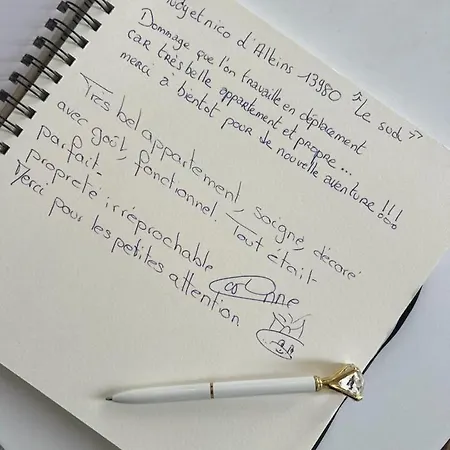 d'Alleins 13980 "Le sud"
Dommage que l'on travaille en déplacement
car très belle appartement et propre...
merci à bientot pour de nouvelle aventure !!!
Très bel appartement, soigné, décoré
avec goût, fonctionnel. Tout était
parfait.
propreté irréprochable
Merci pour les petites attention